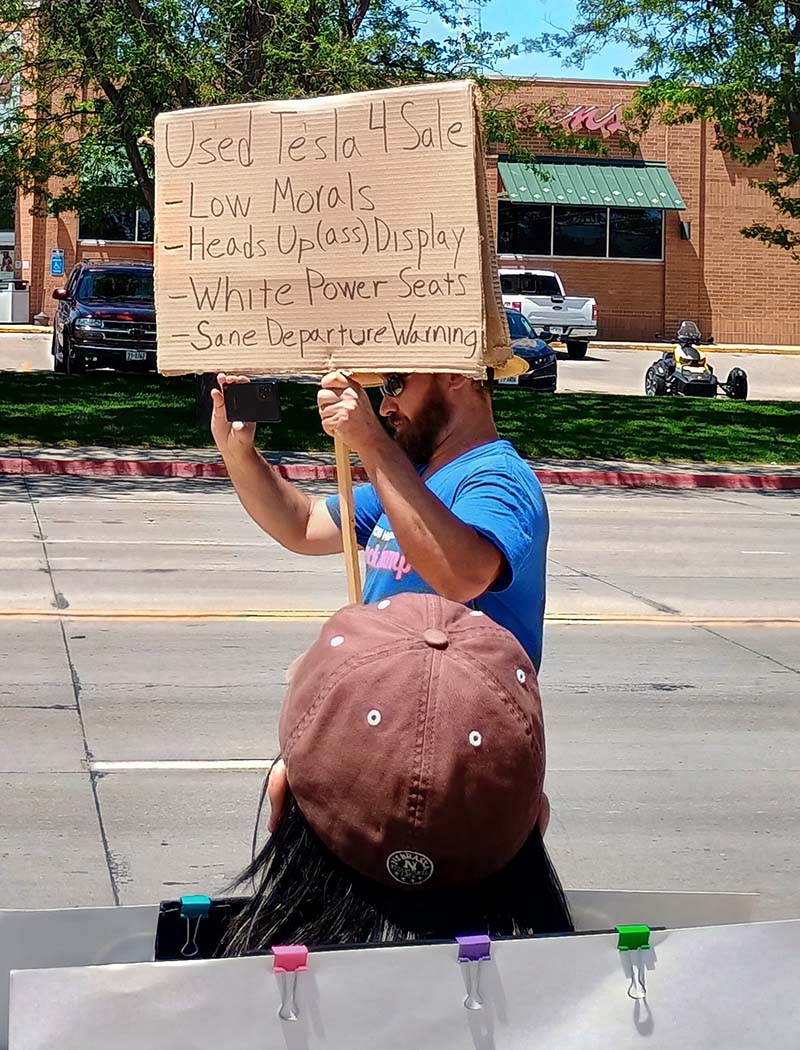 Used Tesla 4 Sale
-Low Morals
-Heads Up(ass)Display
-White Power Seats
-Sane Departure Warning
NEBRASKA
N